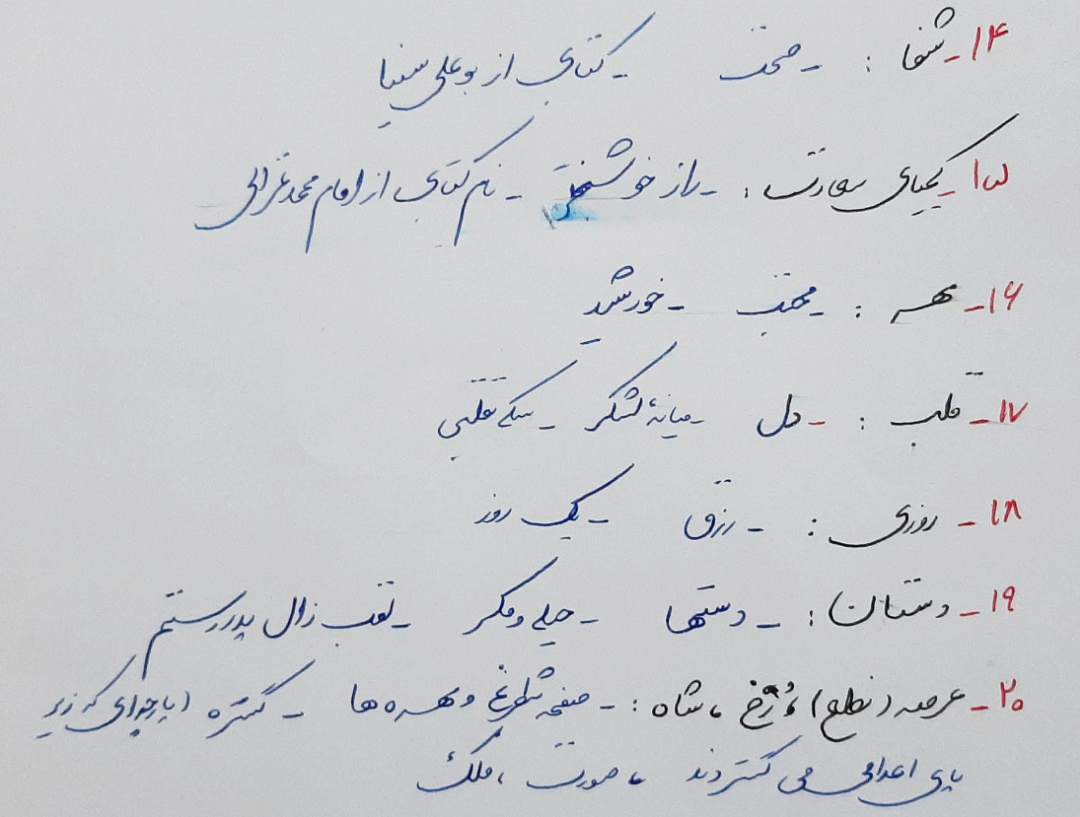 ۱۴- شفا : - صحت - کتابی از بوعلی سینا
۱۵- کیمیای سعادت : - راز خوشبختی - نام کتابی از امام محمد غزالی
۱۶- مهر : - محبت - خورشید
۱۷- قلب : - دل - میانهٔ لشکر - سکه تقلبی
۱۸- روزی : - رزق - یک روز
۱۹- دستان : - دستها - حیله و مکر - لقب زال پدر رستم
۲۰- عرصه (نطع) ، رُخ ، شاه : - صفحه شطرنج و مهره ها - گستره (پارچه‌ای که زیر
پای اعدامی می گستردند ، صورت ، ملک